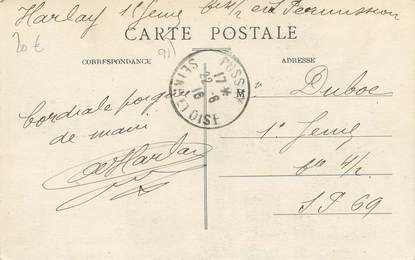 Harlay 1e Genie en Permission
CARTE POSTALE
20 €
91)
CORRESPONDANCE
ADRESSE
SEINE ET OISE
17 *
22 -6
16
M
Duboc
Cordiale poignée
de main
Harlay
1e Genie
4/2
S P 69